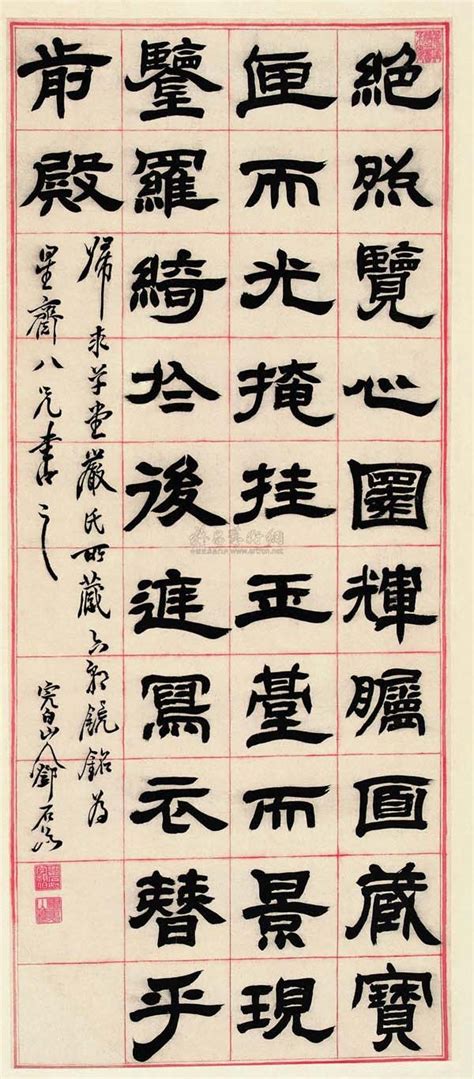 絕照覽心圓輝矚面藏寶
匣而光掩挂玉臺而景現
鑒羅綺於後庭寫衣簪乎
前殿
歸求草堂嚴氏所藏六朝鏡銘為
星齋八兄書之
完白山人鄧石如